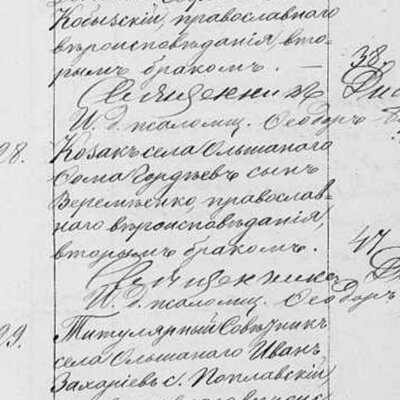 Кобызскій, православнаго
вѣроисповѣданія, вто-
рымъ бракомъ. —
38.
Священникъ
И. д. псаломщ. Ѳеодоръ
28.
Козакъ села Ольшанаго
Ѳома Гордѣевъ сынъ
Веремѣенко, православ-
наго вѣроисповѣданія,
вторымъ бракомъ.
47
Священникъ
И. д. псаломщ. Ѳеодоръ
29.
Титулярный Совѣтникъ
села Ольшанаго Иванъ
Захаріевъ с. Поплавскій,